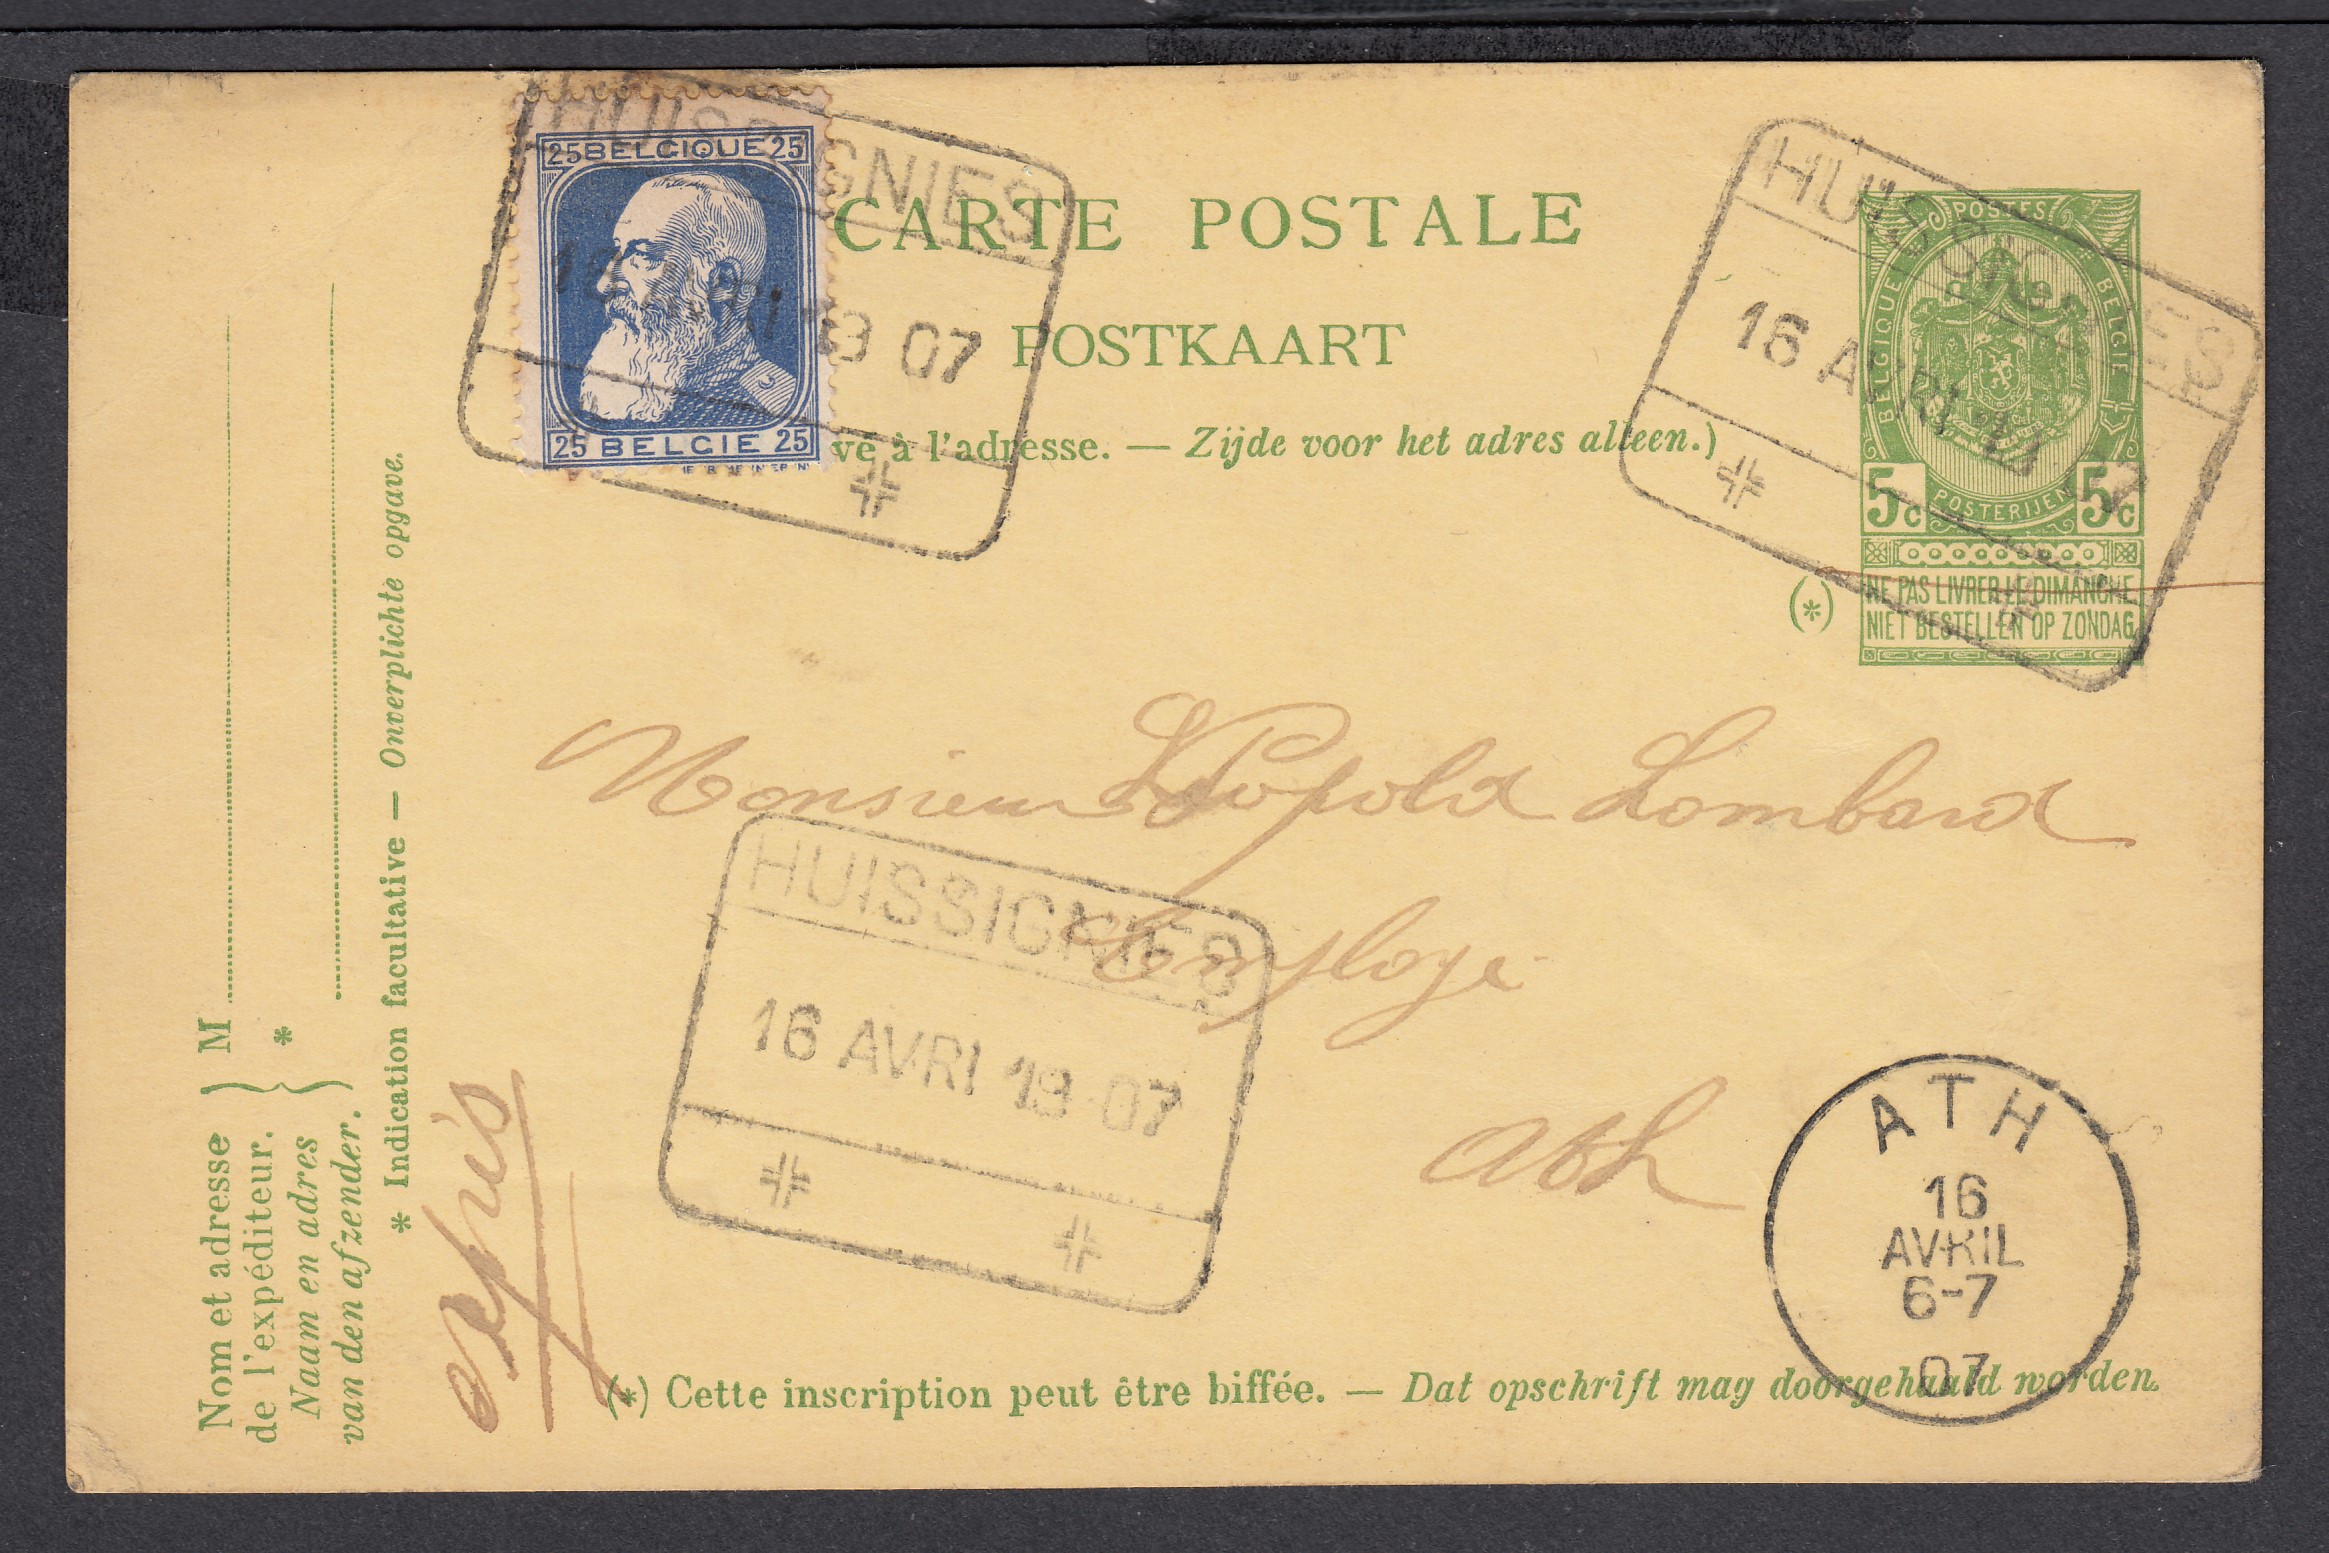 HUISSIGNIES
25 BELGIQUE 25
16 AVRI 19 07
25 BELGIE 25
CARTE POSTALE
POSTKAART
vé à l'adresse. — Zijde voor het adres alleen.)
HUISSIGNIES
16 AVRI 19 07
POSTES
BELGIQUE
BELGIE
5c POSTERIJEN 5c
(*) NE PAS LIVRER LE DIMANCHE
NIET BESTELLEN OP ZONDAG
Monsieur Léopold Lombard
Employé
Ath
HUISSIGNIES
16 AVRI 19 07
ATH
16
AVRIL
6-7
07
exprès
Nom et adresse
de l'expéditeur.
Naam en adres
van den afzender.
M
*
* Indication facultative — Onverplichte opgave.
(*) Cette inscription peut être biffée. — Dat opschrift mag doorgehaald worden.